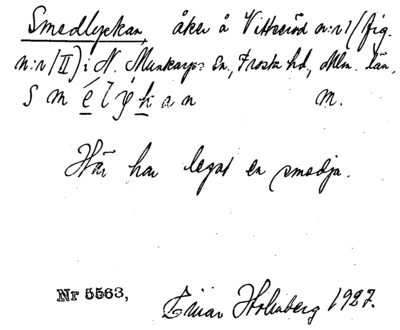 Smedlyckan, åker å Vittseröd n:r 1 (fig.
n:r 1/II) i N. Munkarps sn, Frosta hd, Mlm. län.
s m é l ý k a n m.
Här har legat en smedja.
Nr 5563, Einar Holmberg 1927.